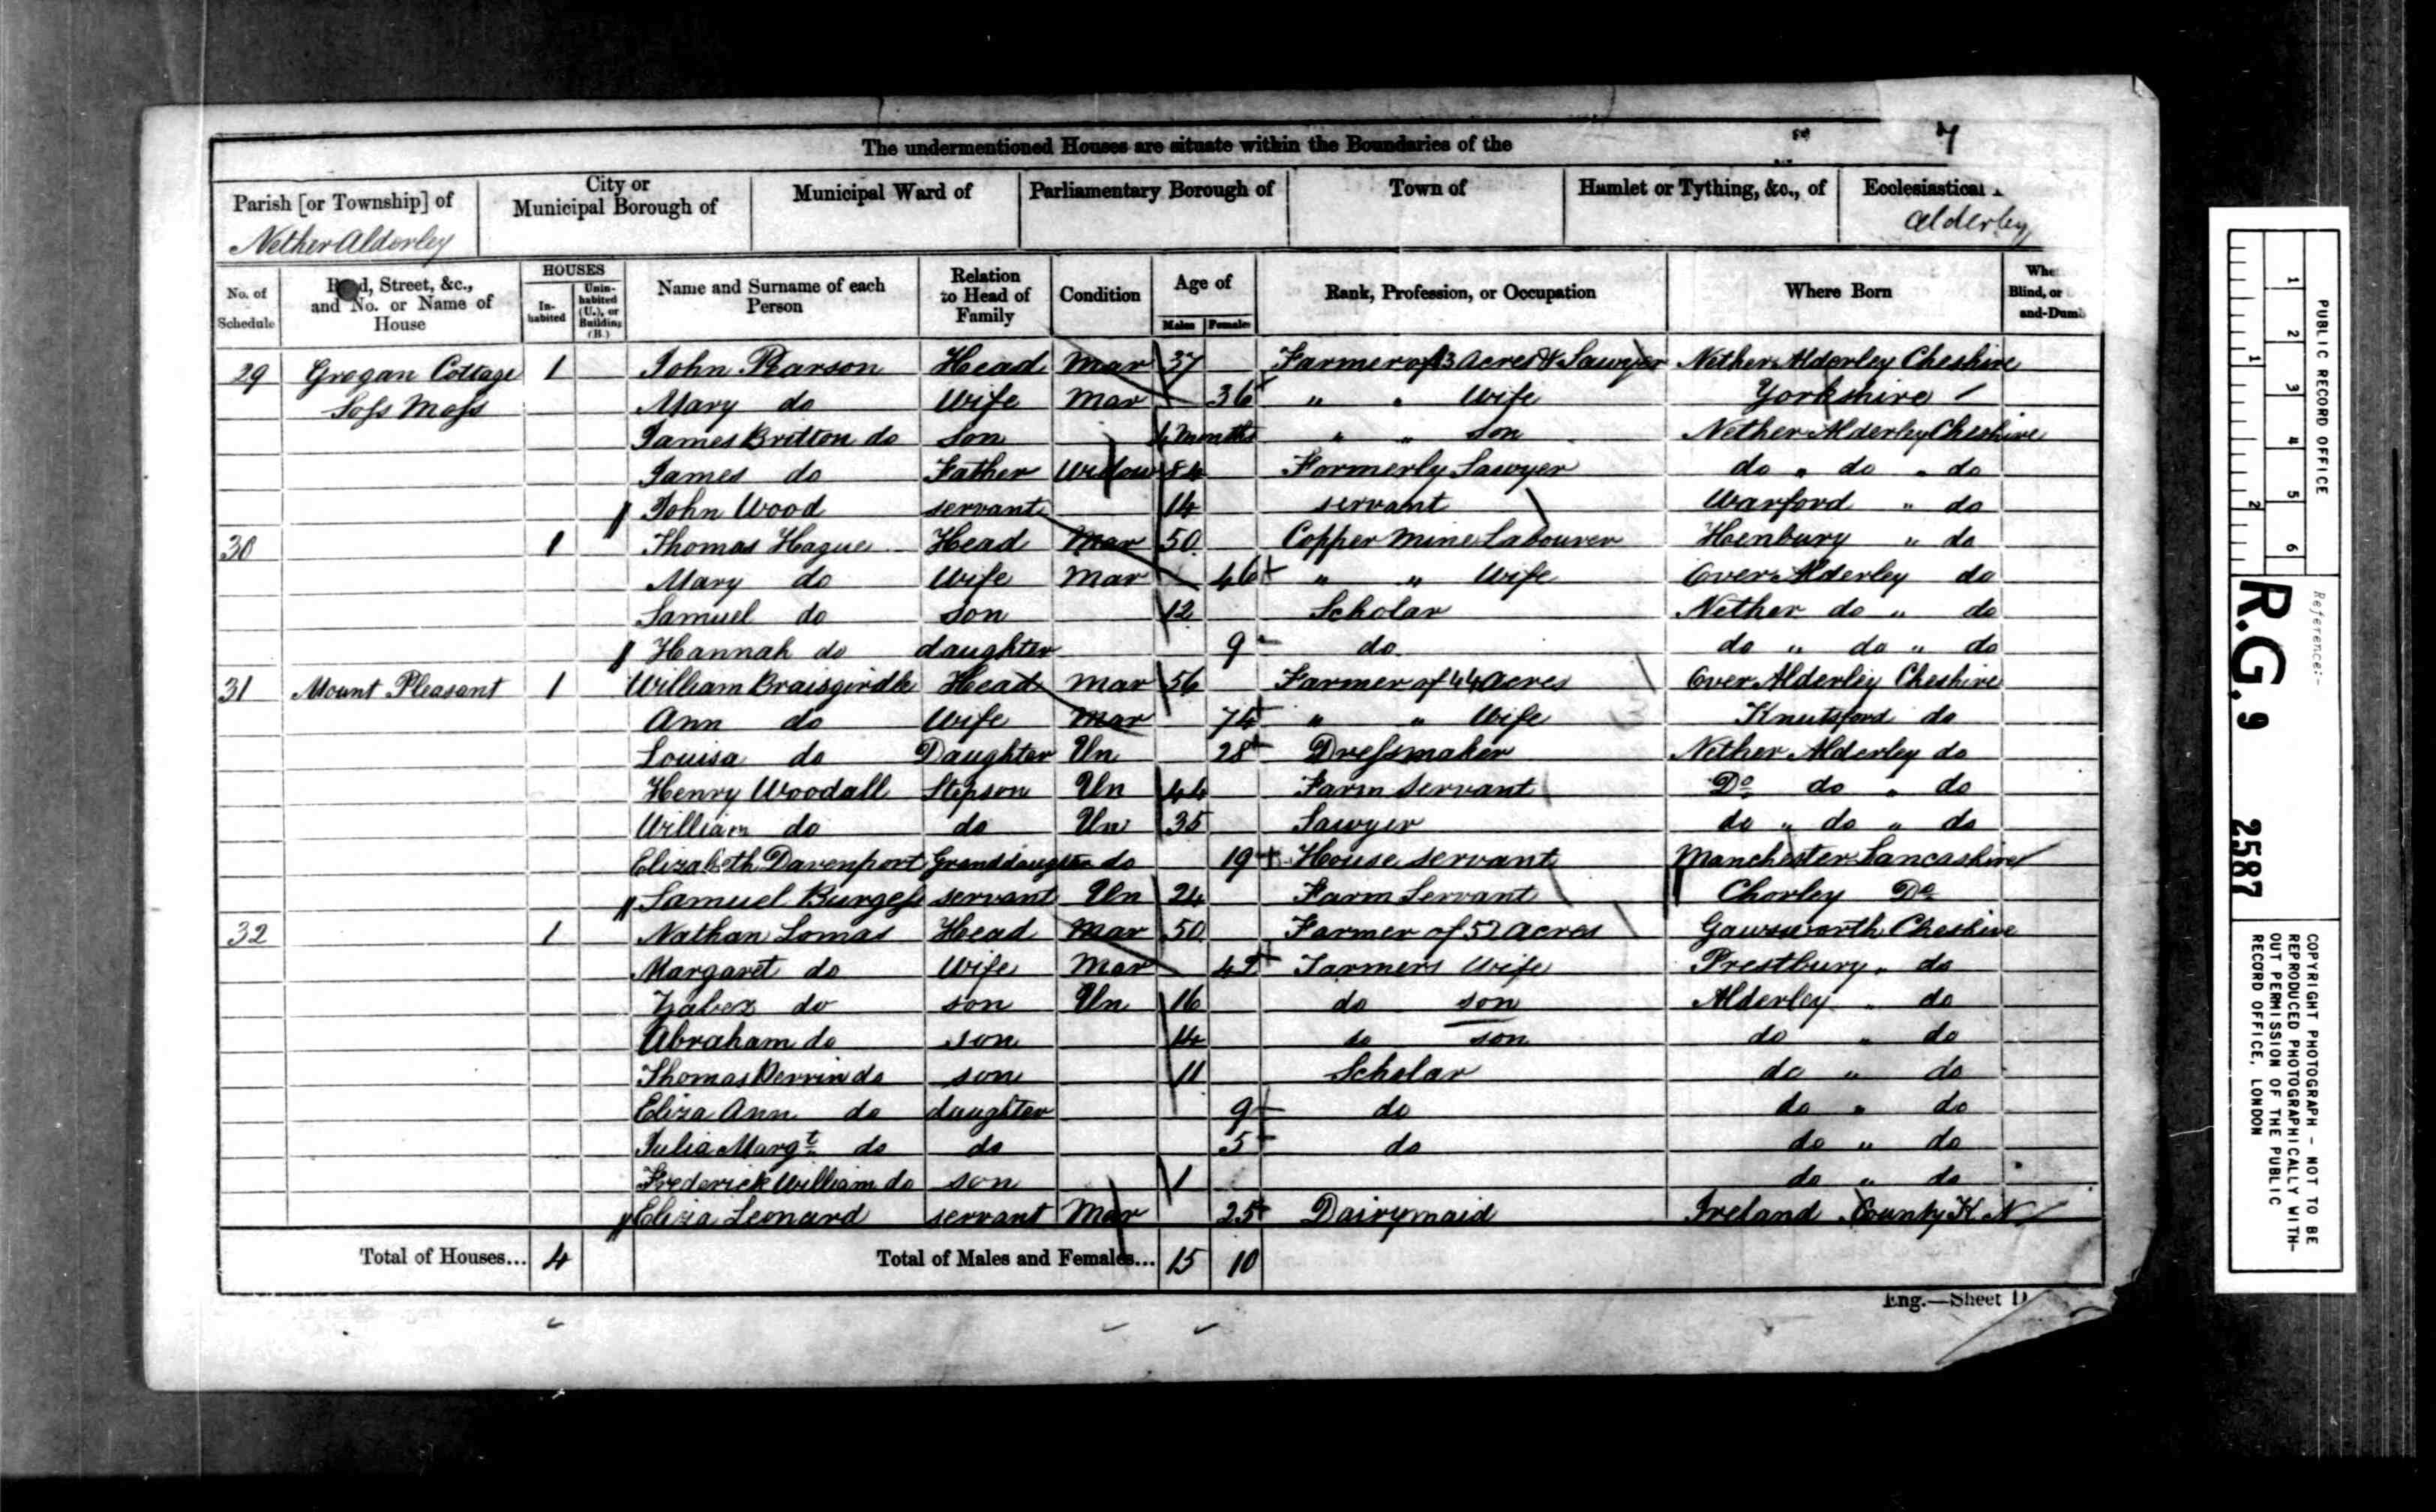 The undermentioned Houses are situate within the Boundaries of the 7
Parish [or Township] of City or Municipal Borough of Municipal Ward of Parliamentary Borough of Town of Hamlet or Tything, &c., of Ecclesiastical
Nether Alderley Alderley
No. of Schedule Road, Street, &c., and No. or Name of House HOUSES Inhabited Uninhabited (U.), or Building (B.) Name and Surname of each Person Relation to Head of Family Condition Age of Males Females Rank, Profession, or Occupation Where Born Whe Blind, or and-Dumb
29 Grogan Cottage 1 John Pearson Head Mar 37 Farmer of 13 Acres & Sawyer Nether Alderley Cheshire
Soss Moss Mary do Wife Mar 36 " " Wife Yorkshire
James Britton do Son 4 Months " " Son Nether Alderley Cheshire
James do Father Widow 84 Formerly Sawyer do " do " do
John Wood servant 14 servant Warford " do
30 1 Thomas Hague Head Mar 50 Copper Mine Labourer Henbury " do
Mary do Wife Mar 46 " " Wife Over Alderley do
Samuel do Son 12 Scholar Nether do " do
Hannah do daughter 9 do do " do " do
31 Mount Pleasant 1 William Braisgirdle Head Mar 56 Farmer of 44 Acres Over Alderley Cheshire
Ann do Wife Mar " " Wife Knutsford do
Louisa do Daughter Un 28 Dressmaker Nether Alderley do
Henry Woodall Stepson Un 44 Farm Servant Do do " do
William do do Un 35 Sawyer do " do " do
Elizabeth Davenport Granddaughter do 19 House servant Manchester Lancashire
Samuel Burgess servant Un 24 Farm Servant Chorley Do
32 1 Nathan Lomas Head Mar 50 Farmer of 52 Acres Gawsworth Cheshire
Margaret do Wife Mar Farmers Wife Prestbury " do
Jabez do son Un 16 do son Alderley " do
Abraham do son 14 do son do " do
Thomas Perrin do son 11 Scholar do " do
Eliza Ann do daughter 9 do do " do
Julia Margt do do 5 do do " do
Frederick William do son 1 do " do
Eliza Leonard servant Mar 25 Dairymaid Ireland County K
Total of Houses... 4 Total of Males and Females... 15 10
Eng.—Sheet D
1 2 3 4 5 6
1 2
PUBLIC RECORD OFFICE
Reference:-
R.G. 9 2587
COPYRIGHT PHOTOGRAPH - NOT TO BE
REPRODUCED PHOTOGRAPHICALLY WITH-
OUT PERMISSION OF THE PUBLIC
RECORD OFFICE, LONDON